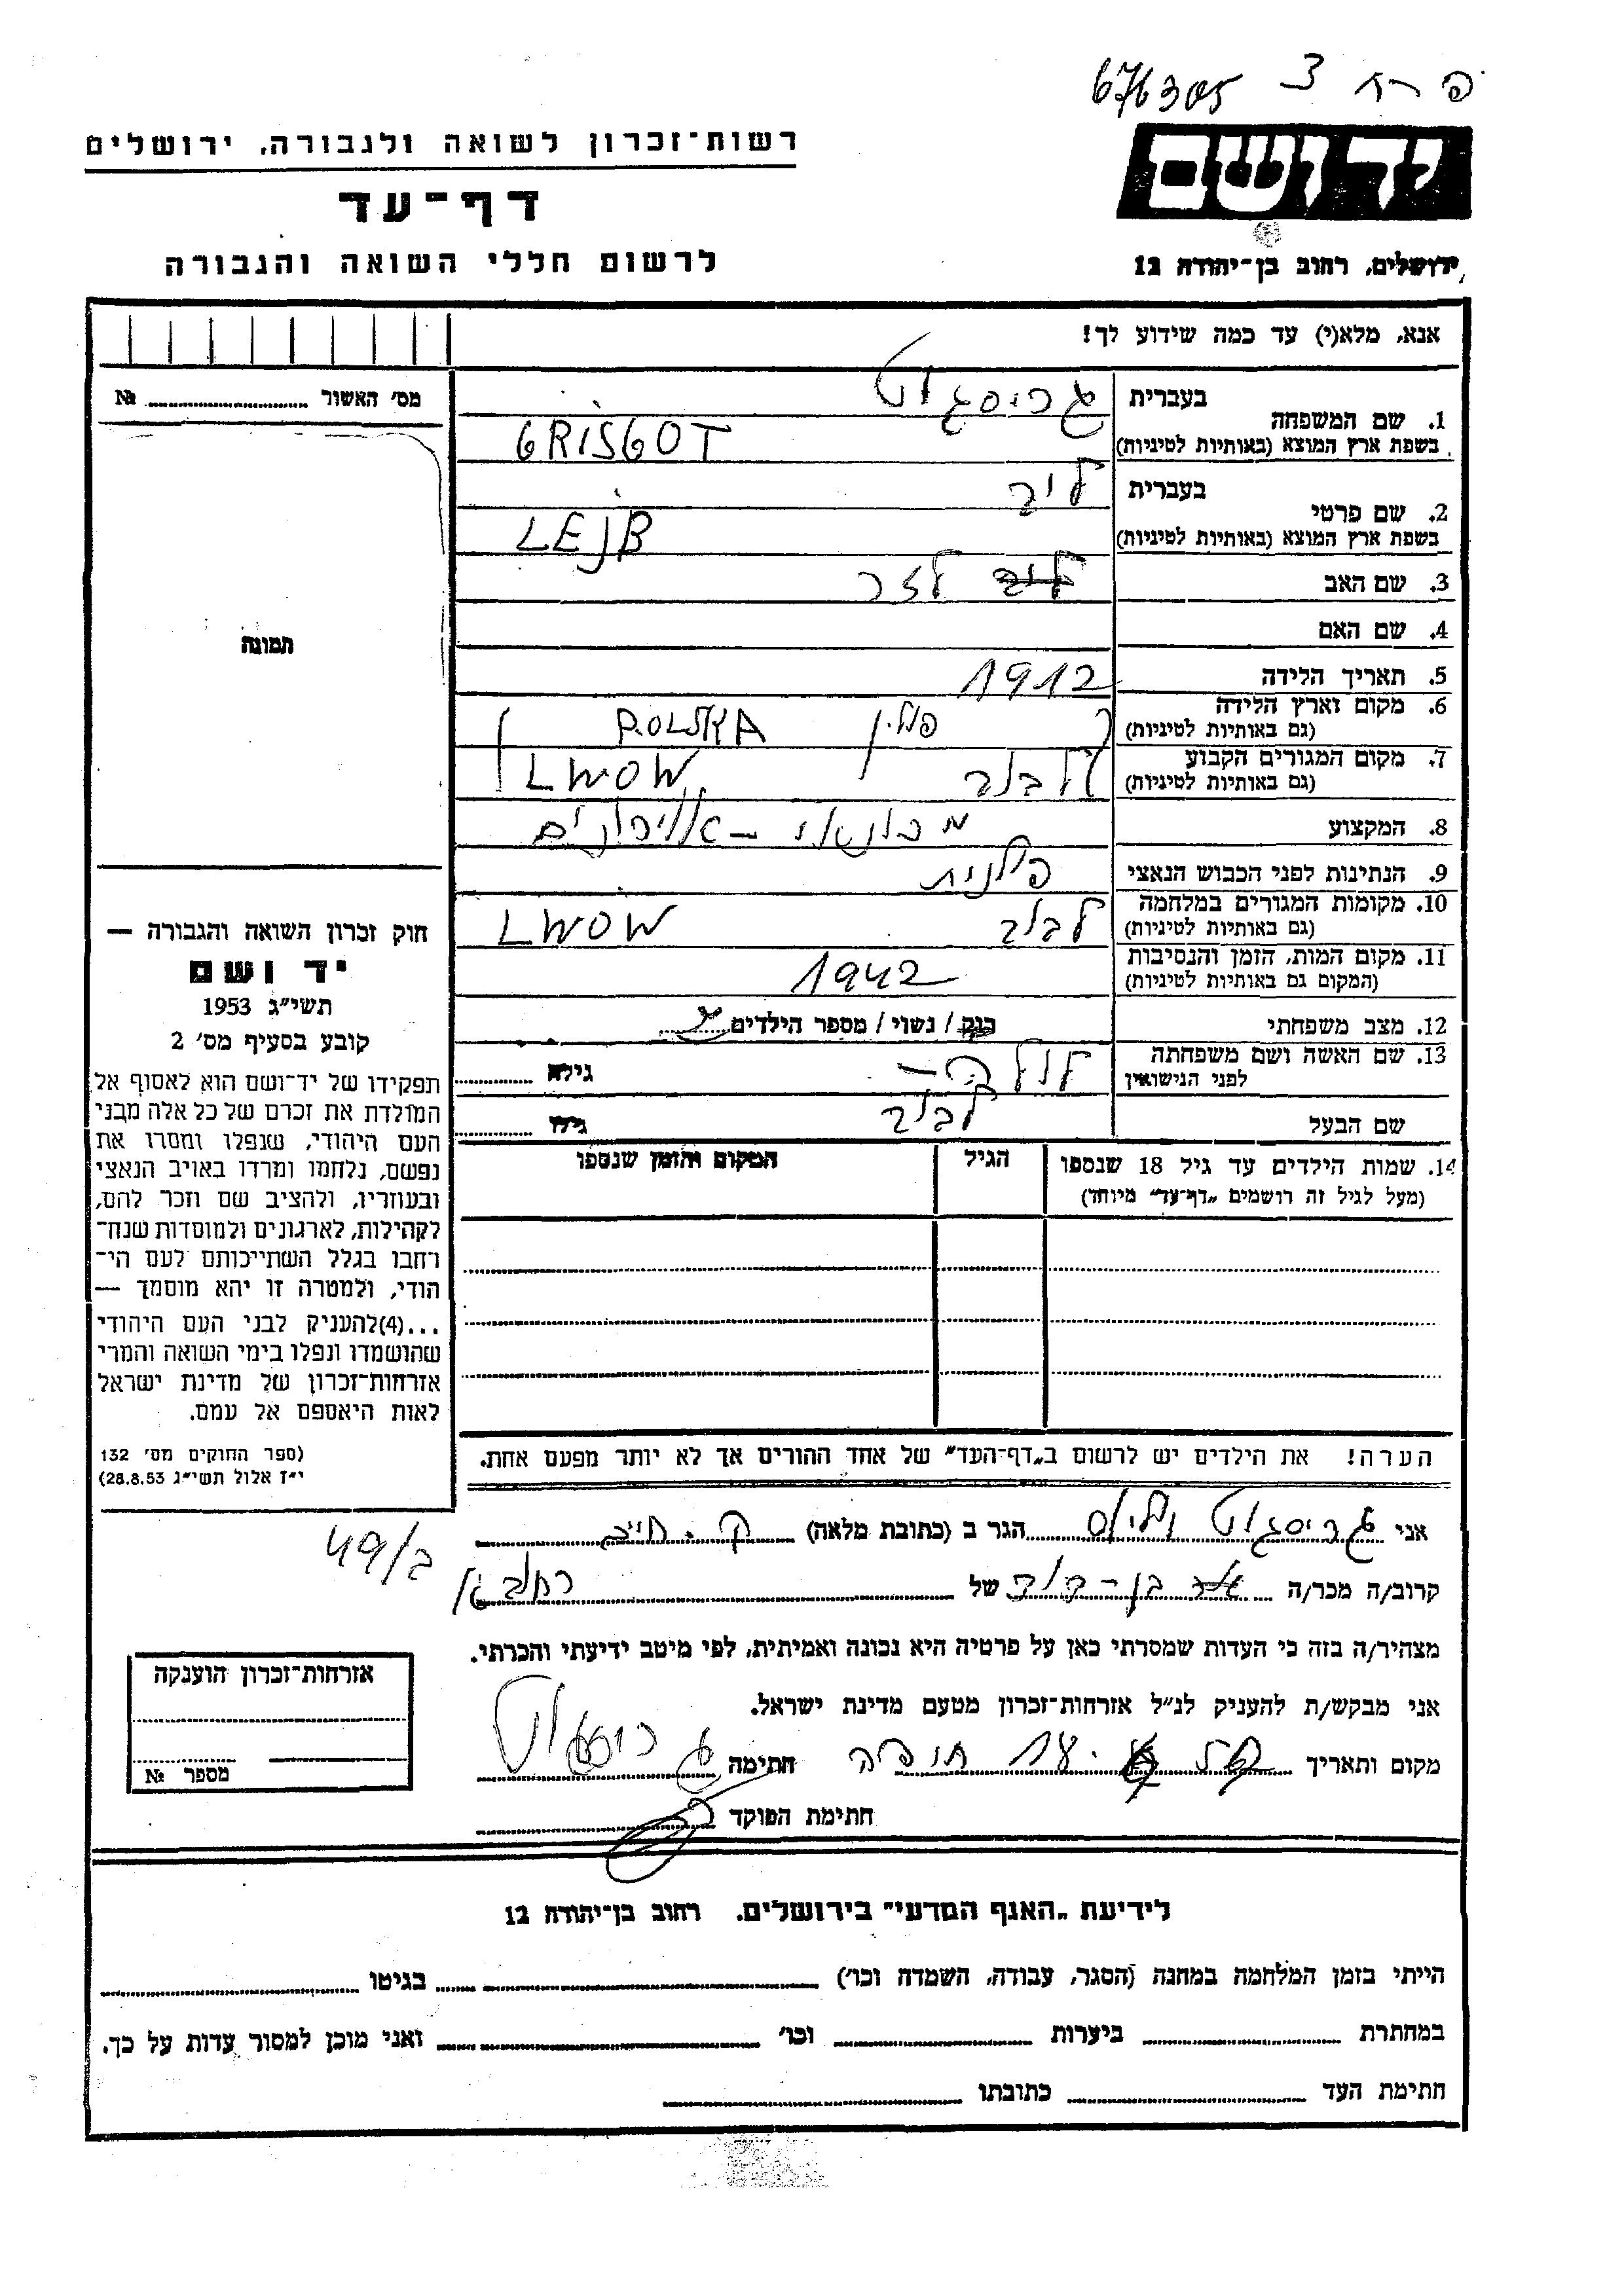 פרח 3 676305
יד ושם
רשות-זכרון לשואה ולגבורה, ירושלים
דף-עד
לרשום חללי השואה והגבורה
ירושלים, רחוב בן-יהודה 12
אנא, מלא(י) עד כמה שידוע לך!
מס׳ האשור № 
תמונה
1. שם המשפחה בעברית גריסגוט
בשפת ארץ המוצא (באותיות לטיניות) GRISGOT
2. שם פרטי בעברית ליב
בשפת ארץ המוצא (באותיות לטיניות) LEJB
3. שם האב לזר
4. שם האם
5. תאריך הלידה 1912
6. מקום וארץ הלידה פולין POLSKA
(גם באותיות לטיניות)
7. מקום המגורים הקבוע לבוב LWOW
(גם באותיות לטיניות)
8. המקצוע מכונאי - אוירונים
9. הנתינות לפני הכבוש הנאצי פולנית
10. מקומות המגורים במלחמה לבוב LWOW
(גם באותיות לטיניות)
11. מקום המות, הזמן והנסיבות 1942
(המקום גם באותיות לטיניות)
12. מצב משפחתי רוק / נשוי / מספר הילדים
13. שם האשה ושם משפחתה
לפני הנישואין גילה
שם הבעל לבוב גילו
14. שמות הילדים עד גיל 18 שנספו הגיל המקום והזמן שנספו
(מעל לגיל זה רושמים „דף-עד״ מיוחד)
הערה! את הילדים יש לרשום ב„דף-העד״ של אחד ההורים אך לא יותר מפעם אחת.
חוק זכרון השואה והגבורה —
יד ושם
תשי״ג 1953
קובע בסעיף מס׳ 2
תפקידו של יד-ושם הוא לאסוף אל
המולדת את זכרם של כל אלה מבני
העם היהודי, שנפלו ומסרו את
נפשם, נלחמו ומרדו באויב הנאצי
ובעוזריו, ולהציב שם וזכר להם,
לקהילות, לארגונים ולמוסדות שנח־
רחבו בגלל השתייכותם לעם הי־
הודי, ולמטרה זו יהא מוסמך —
...(4)להעניק לבני העם היהודי
שהושמדו ונפלו בימי השואה והמרי
אזרחות-זכרון של מדינת ישראל
לאות היאספם אל עמם.
(ספר החוקים מס׳ 132
י״ז אלול תשי״ג 28.8.53)
אני גריסגוט הגר ב (כתובת מלאה) ק. חיים
ב/49
קרוב/ה מכר/ה של
מצהיר/ה בזה כי העדות שמסרתי כאן על פרטיה היא נכונה ואמיתית, לפי מיטב ידיעתי והכרתי.
אני מבקש/ת להעניק לנ״ל אזרחות-זכרון מטעם מדינת ישראל.
מקום ותאריך חתימה גריסגוט
חתימת הפוקד
אזרחות-זכרון הוענקה
מספר №
לידיעת „האגף המדעי״ בירושלים, רחוב בן-יהודה 12
הייתי בזמן המלחמה במחנה (הסגר, עבודה, השמדה וכו׳) בגיטו
במחתרת ביערות וכו׳ ואני מוכן למסור עדות על כך.
חתימת העד כתובתו